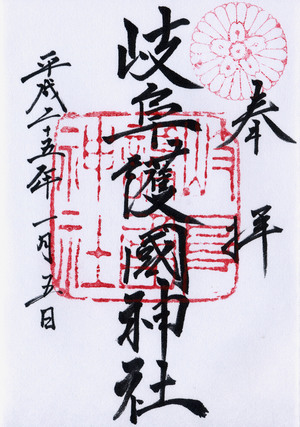 奉拝
岐阜護國神社
平成二十五年一月五日